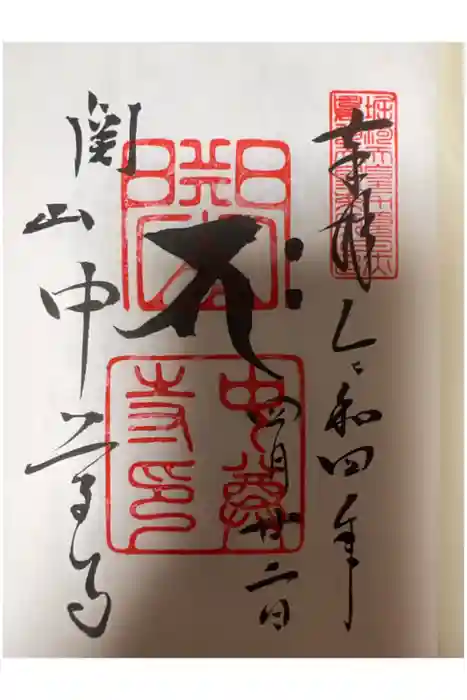 奉拝 令和四年
四月廿二日
中尊
寺印
関山 中尊寺